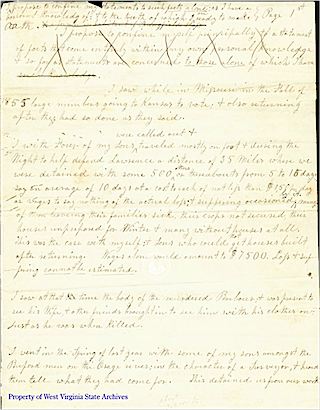 I propose to confine my statements to such facts alone as I have a
personal knowledge of & to the truth of which I ready to make Page 1st
I propose to confine myself principally to a statement
of facts to come entirely within my own personal knowledge
& so far as statements are concerned to those alone of which I have
I saw while in Missouri in the Fall of
55 large numbers going to Kansas to vote, & also returning
after they had so done as they said.
were called out &
I with Four of my Sons traveled mostly on foot & during the
Night to help defend Lawrence a distance of 35 Miles where we
were detained with some 500 or thereabouts from 5 to 15 days
say an average of 10 days at a cost to each of not less than $1.50 per day
as wages to say nothing of the actual loss & suffering occasioned by
many of them leaving their families sick, their crops not secured, their
houses unprepared for Winter & many without houses at all.
This was the case with myself & Sons who could get houses built
after returning. Wages alone would amount to $7500. Loss & suf-
fering cannot be estimated.
I saw at that time the body of the murdered Barber, & was present to
see his Wife & other friends brought in to see him with his clothes on
just as he was when killed.
I went in the Spring of last year with some of my sons amongst the
Buford men on the Osage river, in the character of a Surveyor, & heard
them tell what they had come for. This detained us from our work
Property of West Virginia State Archives